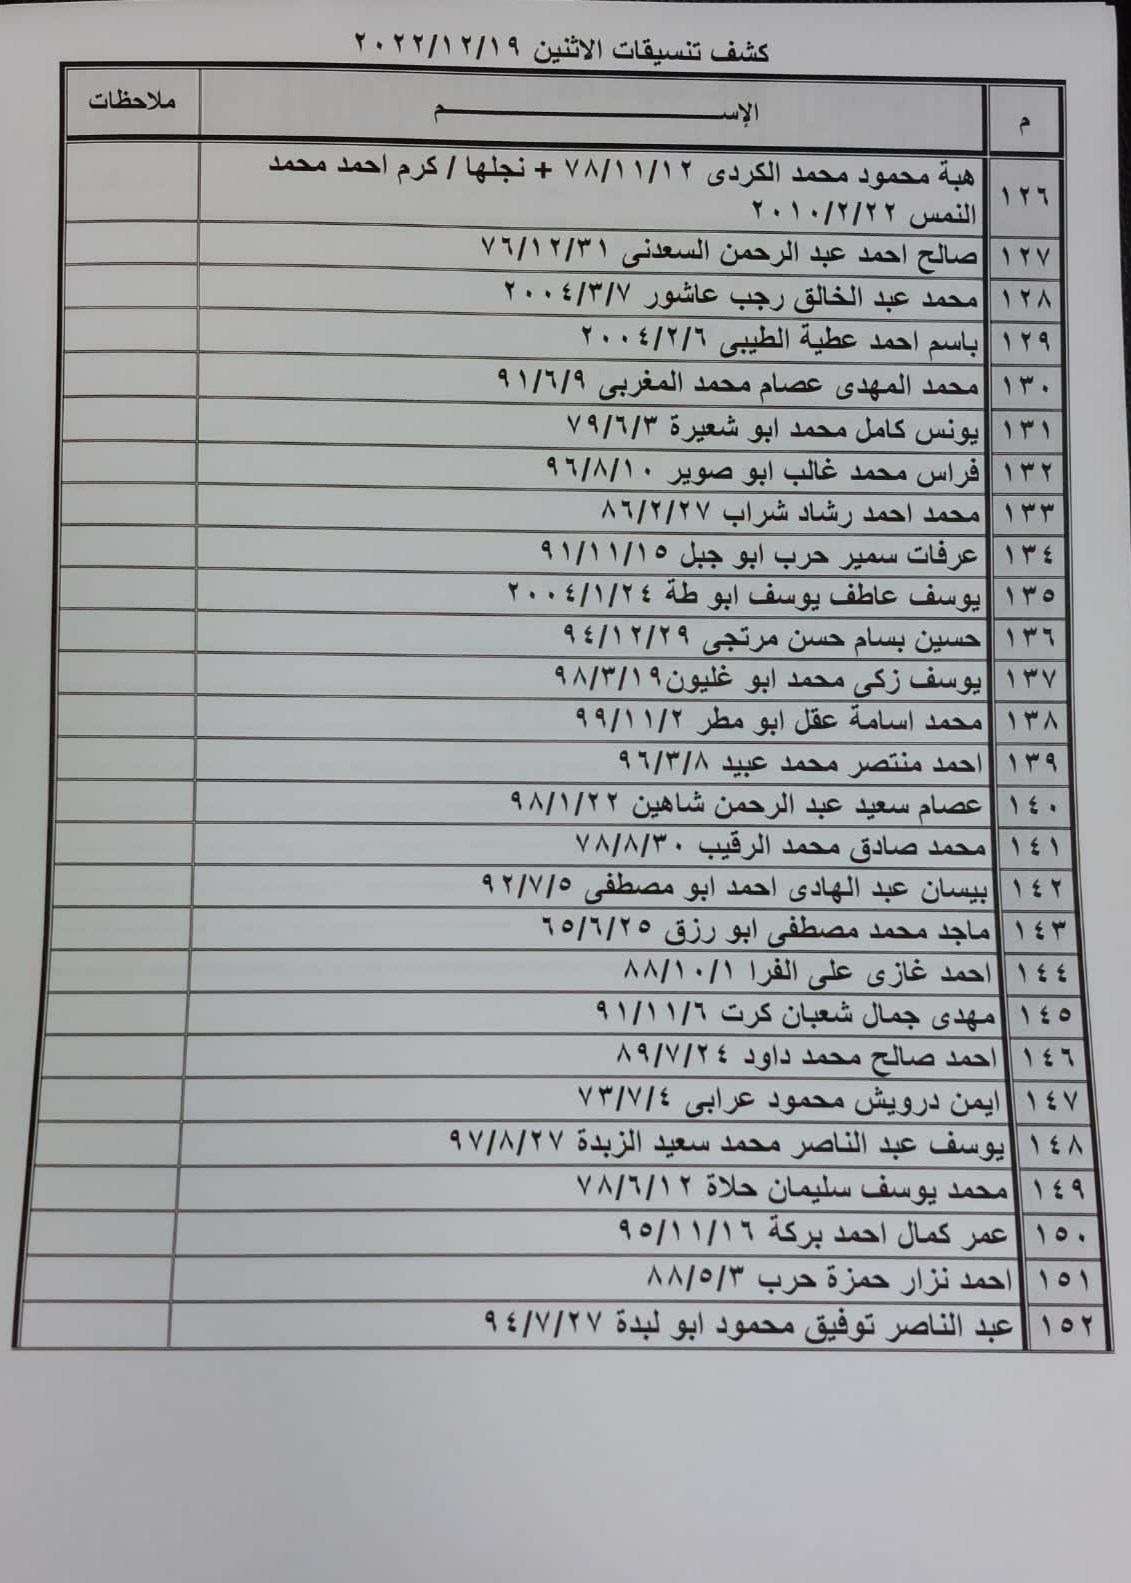 كشف تنسيقات الاثنين ٢٠٢٢/١٢/١٩
م الإســــم ملاحظات
١٢٦ هبة محمود محمد الكردى ٧٨/١١/١٢ + نجلها / كرم احمد محمد
النمس ٢٠١٠/٢/٢٢
١٢٧ صالح احمد عبد الرحمن السعدنى ٧٦/١٢/٣١
١٢٨ محمد عبد الخالق رجب عاشور ٢٠٠٤/٣/٧
١٢٩ باسم احمد عطية الطيبى ٢٠٠٤/٢/٦
١٣٠ محمد المهدى عصام محمد المغربى ٩١/٦/٩
١٣١ يونس كامل محمد ابو شعيرة ٧٩/٦/٣
١٣٢ فراس محمد غالب ابو صوير ٩٦/٨/١٠
١٣٣ محمد احمد رشاد شراب ٨٦/٢/٢٧
١٣٤ عرفات سمير حرب ابو جبل ٩١/١١/١٥
١٣٥ يوسف عاطف يوسف ابو طة ٢٠٠٤/١/٢٤
١٣٦ حسين بسام حسن مرتجى ٩٤/١٢/٢٩
١٣٧ يوسف زكى محمد ابو غليون٩٨/٣/١٩
١٣٨ محمد اسامة عقل ابو مطر ٩٩/١١/٢
١٣٩ احمد منتصر محمد عبيد ٩٦/٣/٨
١٤٠ عصام سعيد عبد الرحمن شاهين ٩٨/١/٢٢
١٤١ محمد صادق محمد الرقيب ٧٨/٨/٣٠
١٤٢ بيسان عبد الهادى احمد ابو مصطفى ٩٢/٧/٥
١٤٣ ماجد محمد مصطفى ابو رزق ٦٥/٦/٢٥
١٤٤ احمد غازى على الفرا ٨٨/١٠/١
١٤٥ مهدى جمال شعبان كرت ٩١/١١/٦
١٤٦ احمد صالح محمد داود ٨٩/٧/٢٤
١٤٧ ايمن درويش محمود عرابى ٧٣/٧/٤
١٤٨ يوسف عبد الناصر محمد سعيد الزبدة ٩٧/٨/٢٧
١٤٩ محمد يوسف سليمان حلاة ٧٨/٦/١٢
١٥٠ عمر كمال احمد بركة ٩٥/١١/١٦
١٥١ احمد نزار حمزة حرب ٨٨/٥/٣
١٥٢ عبد الناصر توفيق محمود ابو لبدة ٩٤/٧/٢٧